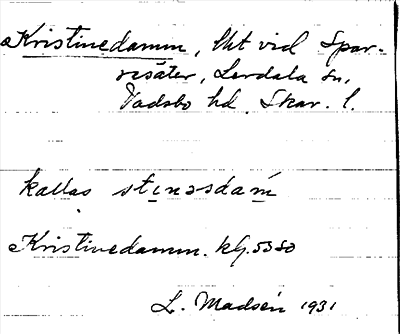 Kristinedamm, lht vid Spar-
resäter, Lerdala sn,
Vadsbo hd. Skar. l.
kallas stinəsdam̄
Kristinedamm. kG. 53 SO
L. Madsén 1931